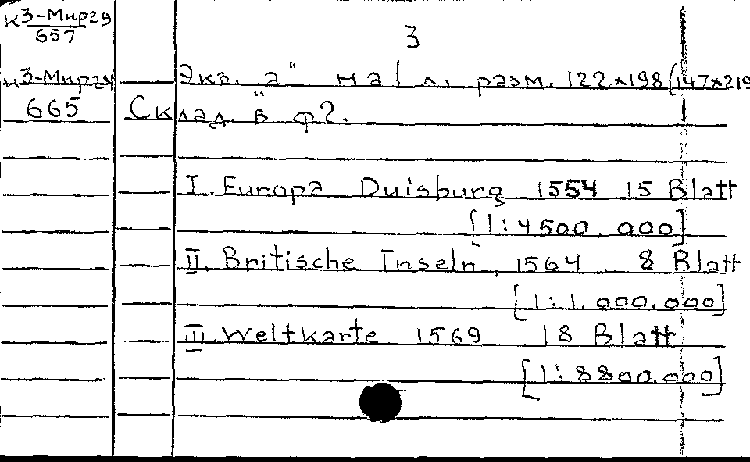 К 3-Мир29
657
3
К 3-Мир29
665
Экз. "а" на 1 л. разм. 122×198 (147×219
Склад. "в" ф2.
I. Europa Duisburg 1554 15 Blatt
[1:4500.000]
II. Britische Inseln, 1564 8 Blatt
[1:1.000.000]
III Weltkarte 1569 18 Blatt
[1:8800.000]